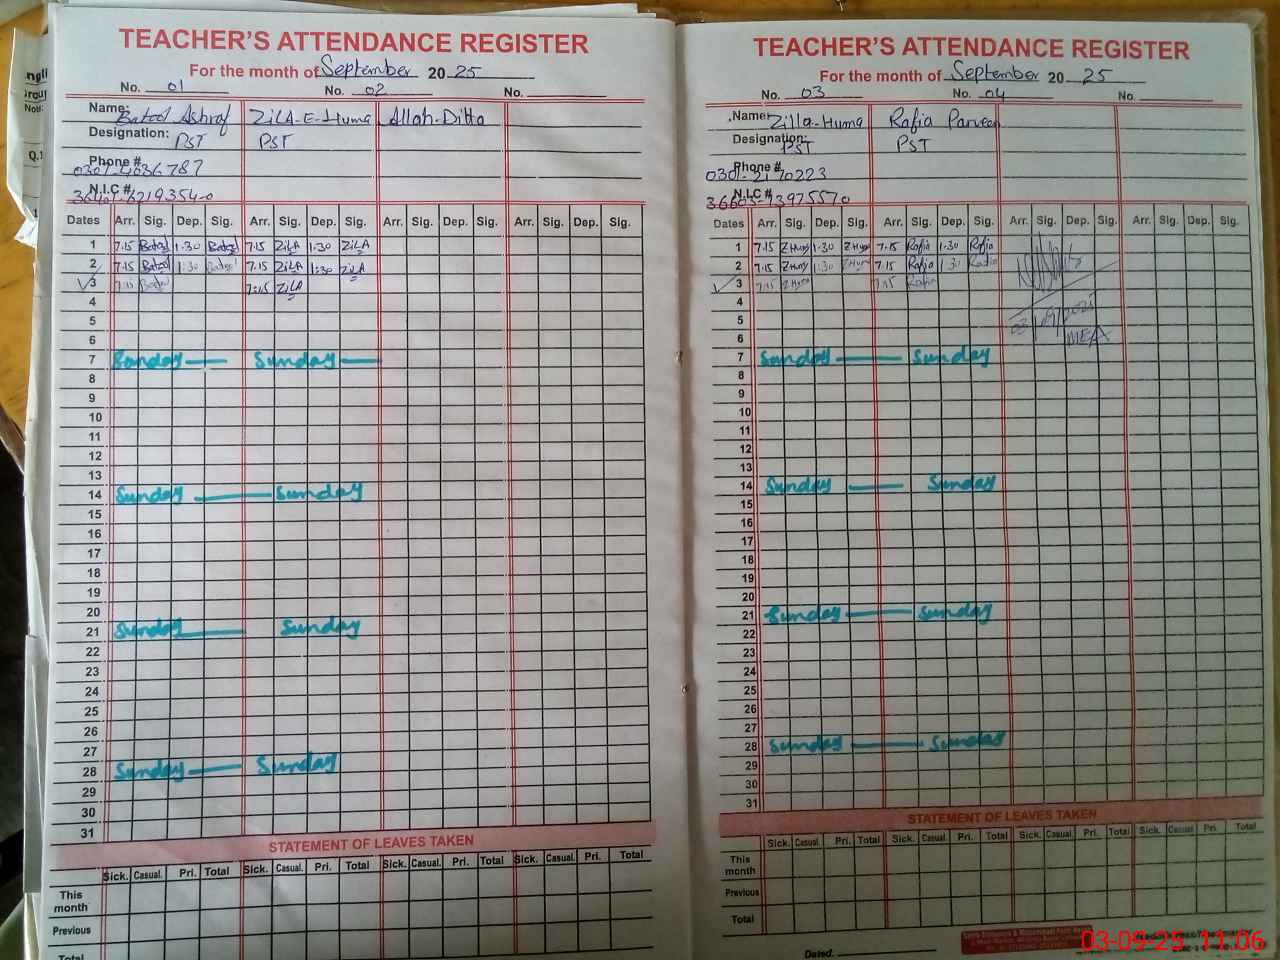 TEACHER'S ATTENDANCE REGISTER
For the month of September 20 25
No. 01 No. 02 No.
Name: Batool Ashraf ZiLA-E-Huma Allah-Ditta
Designation: PST PST
Phone #
N.I.C #
Dates Arr. Sig. Dep. Sig. Arr. Sig. Dep. Sig. Arr. Sig. Dep. Sig. Arr. Sig. Dep. Sig.
1 7.15 Batool 1.30 Batool 7.15 ZiLA 1.30 ZiLA
2 7.15 Batool 1.30 Batool 7.15 ZiLA 1.30 ZiLA
3 7.15 Batool 7.15 ZiLA
4
5
6
7 Sunday Sunday
8
9
10
11
12
13
14 Sunday Sunday
15
16
17
18
19
20
21 Sunday Sunday
22
23
24
25
26
27
28 Sunday Sunday
29
30
31
STATEMENT OF LEAVES TAKEN
Sick. Casual. Pri. Total Sick. Casual. Pri. Total Sick. Casual. Pri. Total Sick. Casual. Pri. Total
This month
Previous
Total
TEACHER'S ATTENDANCE REGISTER
For the month of September 20 25
No. 03 No. 04 No.
Name Zilla-Huma Rafia Parveen
Designation: PST PST
Phone #
N.I.C #
Dates Arr. Sig. Dep. Sig. Arr. Sig. Dep. Sig. Arr. Sig. Dep. Sig. Arr. Sig. Dep. Sig.
1 7.15 ZHuma 1.30 ZHuma 7.15 Rafia 1.30 Rafia
2 7.15 ZHuma 1.30 ZHuma 7.15 Rafia 1.30 Rafia
3 7.15 ZHuma 7.15 Rafia
4
5 03/09/2025
6 MEA
7 Sunday Sunday
8
9
10
11
12
13
14 Sunday Sunday
15
16
17
18
19
20
21 Sunday Sunday
22
23
24
25
26
27
28 Sunday Sunday
29
30
31
STATEMENT OF LEAVES TAKEN
Sick. Casual. Pri. Total Sick. Casual. Pri. Total Sick. Casual. Pri. Total Sick. Casual. Pri. Total
This month
Previous
Total
Dated.
03-09-25 11:06